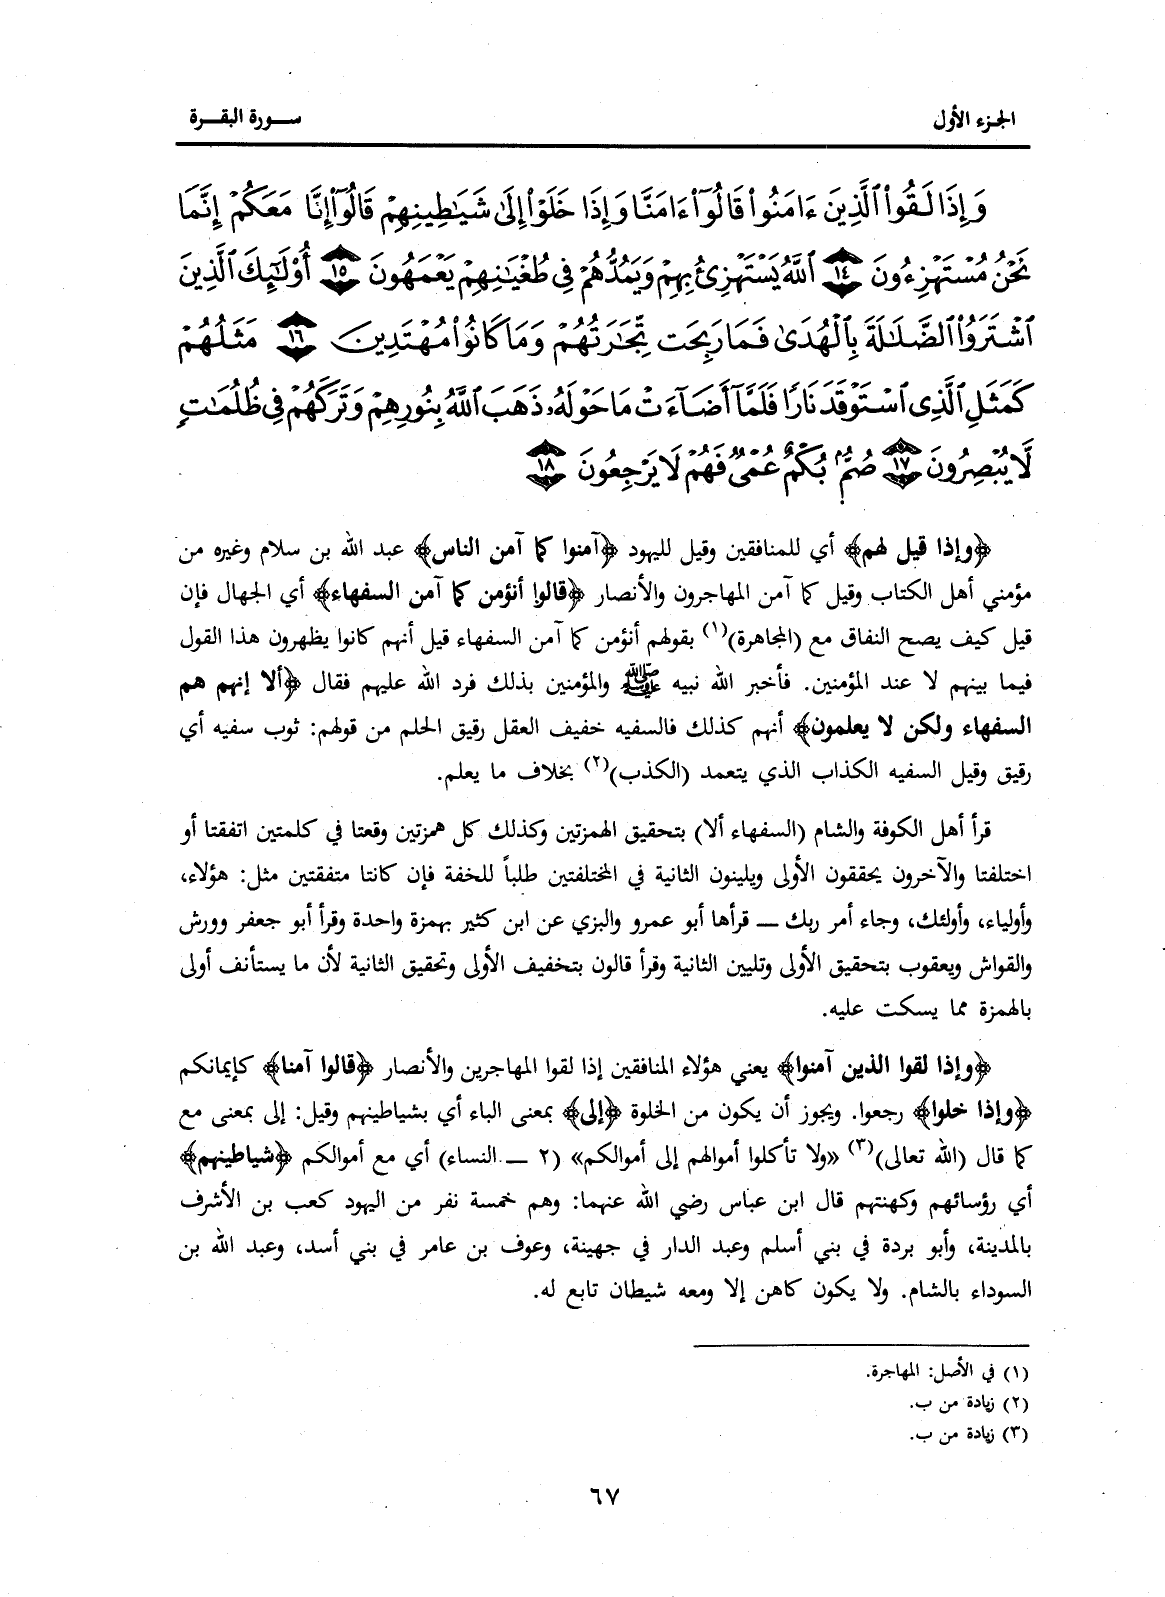 الجزء الأول
ســورة البقــرة
وَإِذَا لَقُوا۟ ٱلَّذِينَ ءَامَنُوا۟ قَالُوٓا۟ ءَامَنَّا وَإِذَا خَلَوْا۟ إِلَىٰ شَيَـٰطِينِهِمْ قَالُوٓا۟ إِنَّا مَعَكُمْ إِنَّمَا
نَحْنُ مُسْتَهْزِءُونَ ١٤ ٱللَّهُ يَسْتَهْزِئُ بِهِمْ وَيَمُدُّهُمْ فِى طُغْيَـٰنِهِمْ يَعْمَهُونَ ١٥ أُو۟لَـٰٓئِكَ ٱلَّذِينَ
ٱشْتَرَوُا۟ ٱلضَّلَـٰلَةَ بِٱلْهُدَىٰ فَمَا رَبِحَت تِّجَـٰرَتُهُمْ وَمَا كَانُوا۟ مُهْتَدِينَ ١٦ مَثَلُهُمْ
كَمَثَلِ ٱلَّذِى ٱسْتَوْقَدَ نَارًا فَلَمَّآ أَضَآءَتْ مَا حَوْلَهُۥ ذَهَبَ ٱللَّهُ بِنُورِهِمْ وَتَرَكَهُمْ فِى ظُلُمَـٰتٍ
لَّا يُبْصِرُونَ ١٧ صُمٌّۢ بُكْمٌ عُمْىٌ فَهُمْ لَا يَرْجِعُونَ ١٨
﴿وإذا قيل لهم﴾ أي للمنافقين وقيل لليهود ﴿آمنوا كما آمن الناس﴾ عبد الله بن سلام وغيره من
مؤمني أهل الكتاب وقيل كما آمن المهاجرون والأنصار ﴿قالوا أنؤمن كما آمن السفهاء﴾ أي الجهال فإن
قيل كيف يصح النفاق مع (المجاهرة)(١) بقولهم أنؤمن كما آمن السفهاء قيل أنهم كانوا يظهرون هذا القول
فيما بينهم لا عند المؤمنين. فأخبر الله نبيه ﷺ والمؤمنين بذلك فرد الله عليهم فقال ﴿ألا إنهم هم
السفهاء ولكن لا يعلمون﴾ أنهم كذلك فالسفيه خفيف العقل رقيق الحلم من قولهم: ثوب سفيه أي
رقيق وقيل السفيه الكذاب الذي يتعمد (الكذب)(٢) بخلاف ما يعلم.
قرأ أهل الكوفة والشام (السفهاء ألا) بتحقيق الهمزتين وكذلك كل همزتين وقعتا في كلمتين اتفقتا أو
اختلفتا والآخرون يحققون الأولى ويلينون الثانية في المختلفتين طلباً للخفة فإن كانتا متفقتين مثل: هؤلاء،
وأولياء، وأولئك، وجاء أمر ربك ــ قرأها أبو عمرو والبزي عن ابن كثير بهمزة واحدة وقرأ أبو جعفر وورش
والقواش ويعقوب بتحقيق الأولى وتليين الثانية وقرأ قالون بتخفيف الأولى وتحقيق الثانية لأن ما يستأنف أولى
بالهمزة مما يسكت عليه.
﴿وإذا لقوا الذين آمنوا﴾ يعني هؤلاء المنافقين إذا لقوا المهاجرين والأنصار ﴿قالوا آمنا﴾ كإيمانكم
﴿وإذا خلوا﴾ رجعوا. ويجوز أن يكون من الخلوة ﴿إلى﴾ بمعنى الباء أي بشياطينهم وقيل: إلى بمعنى مع
كما قال (الله تعالى)(٣) «ولا تأكلوا أموالهم إلى أموالكم» (٢ ــ النساء) أي مع أموالكم ﴿شياطينهم﴾
أي رؤسائهم وكهنتهم قال ابن عباس رضي الله عنهما: وهم خمسة نفر من اليهود كعب بن الأشرف
بالمدينة، وأبو بردة في بني أسلم وعبد الدار في جهينة، وعوف بن عامر في بني أسد، وعبد الله بن
السوداء بالشام. ولا يكون كاهن إلا ومعه شيطان تابع له.
(١) في الأصل: المهاجرة.
(٢) زيادة من ب.
(٣) زيادة من ب.
٦٧